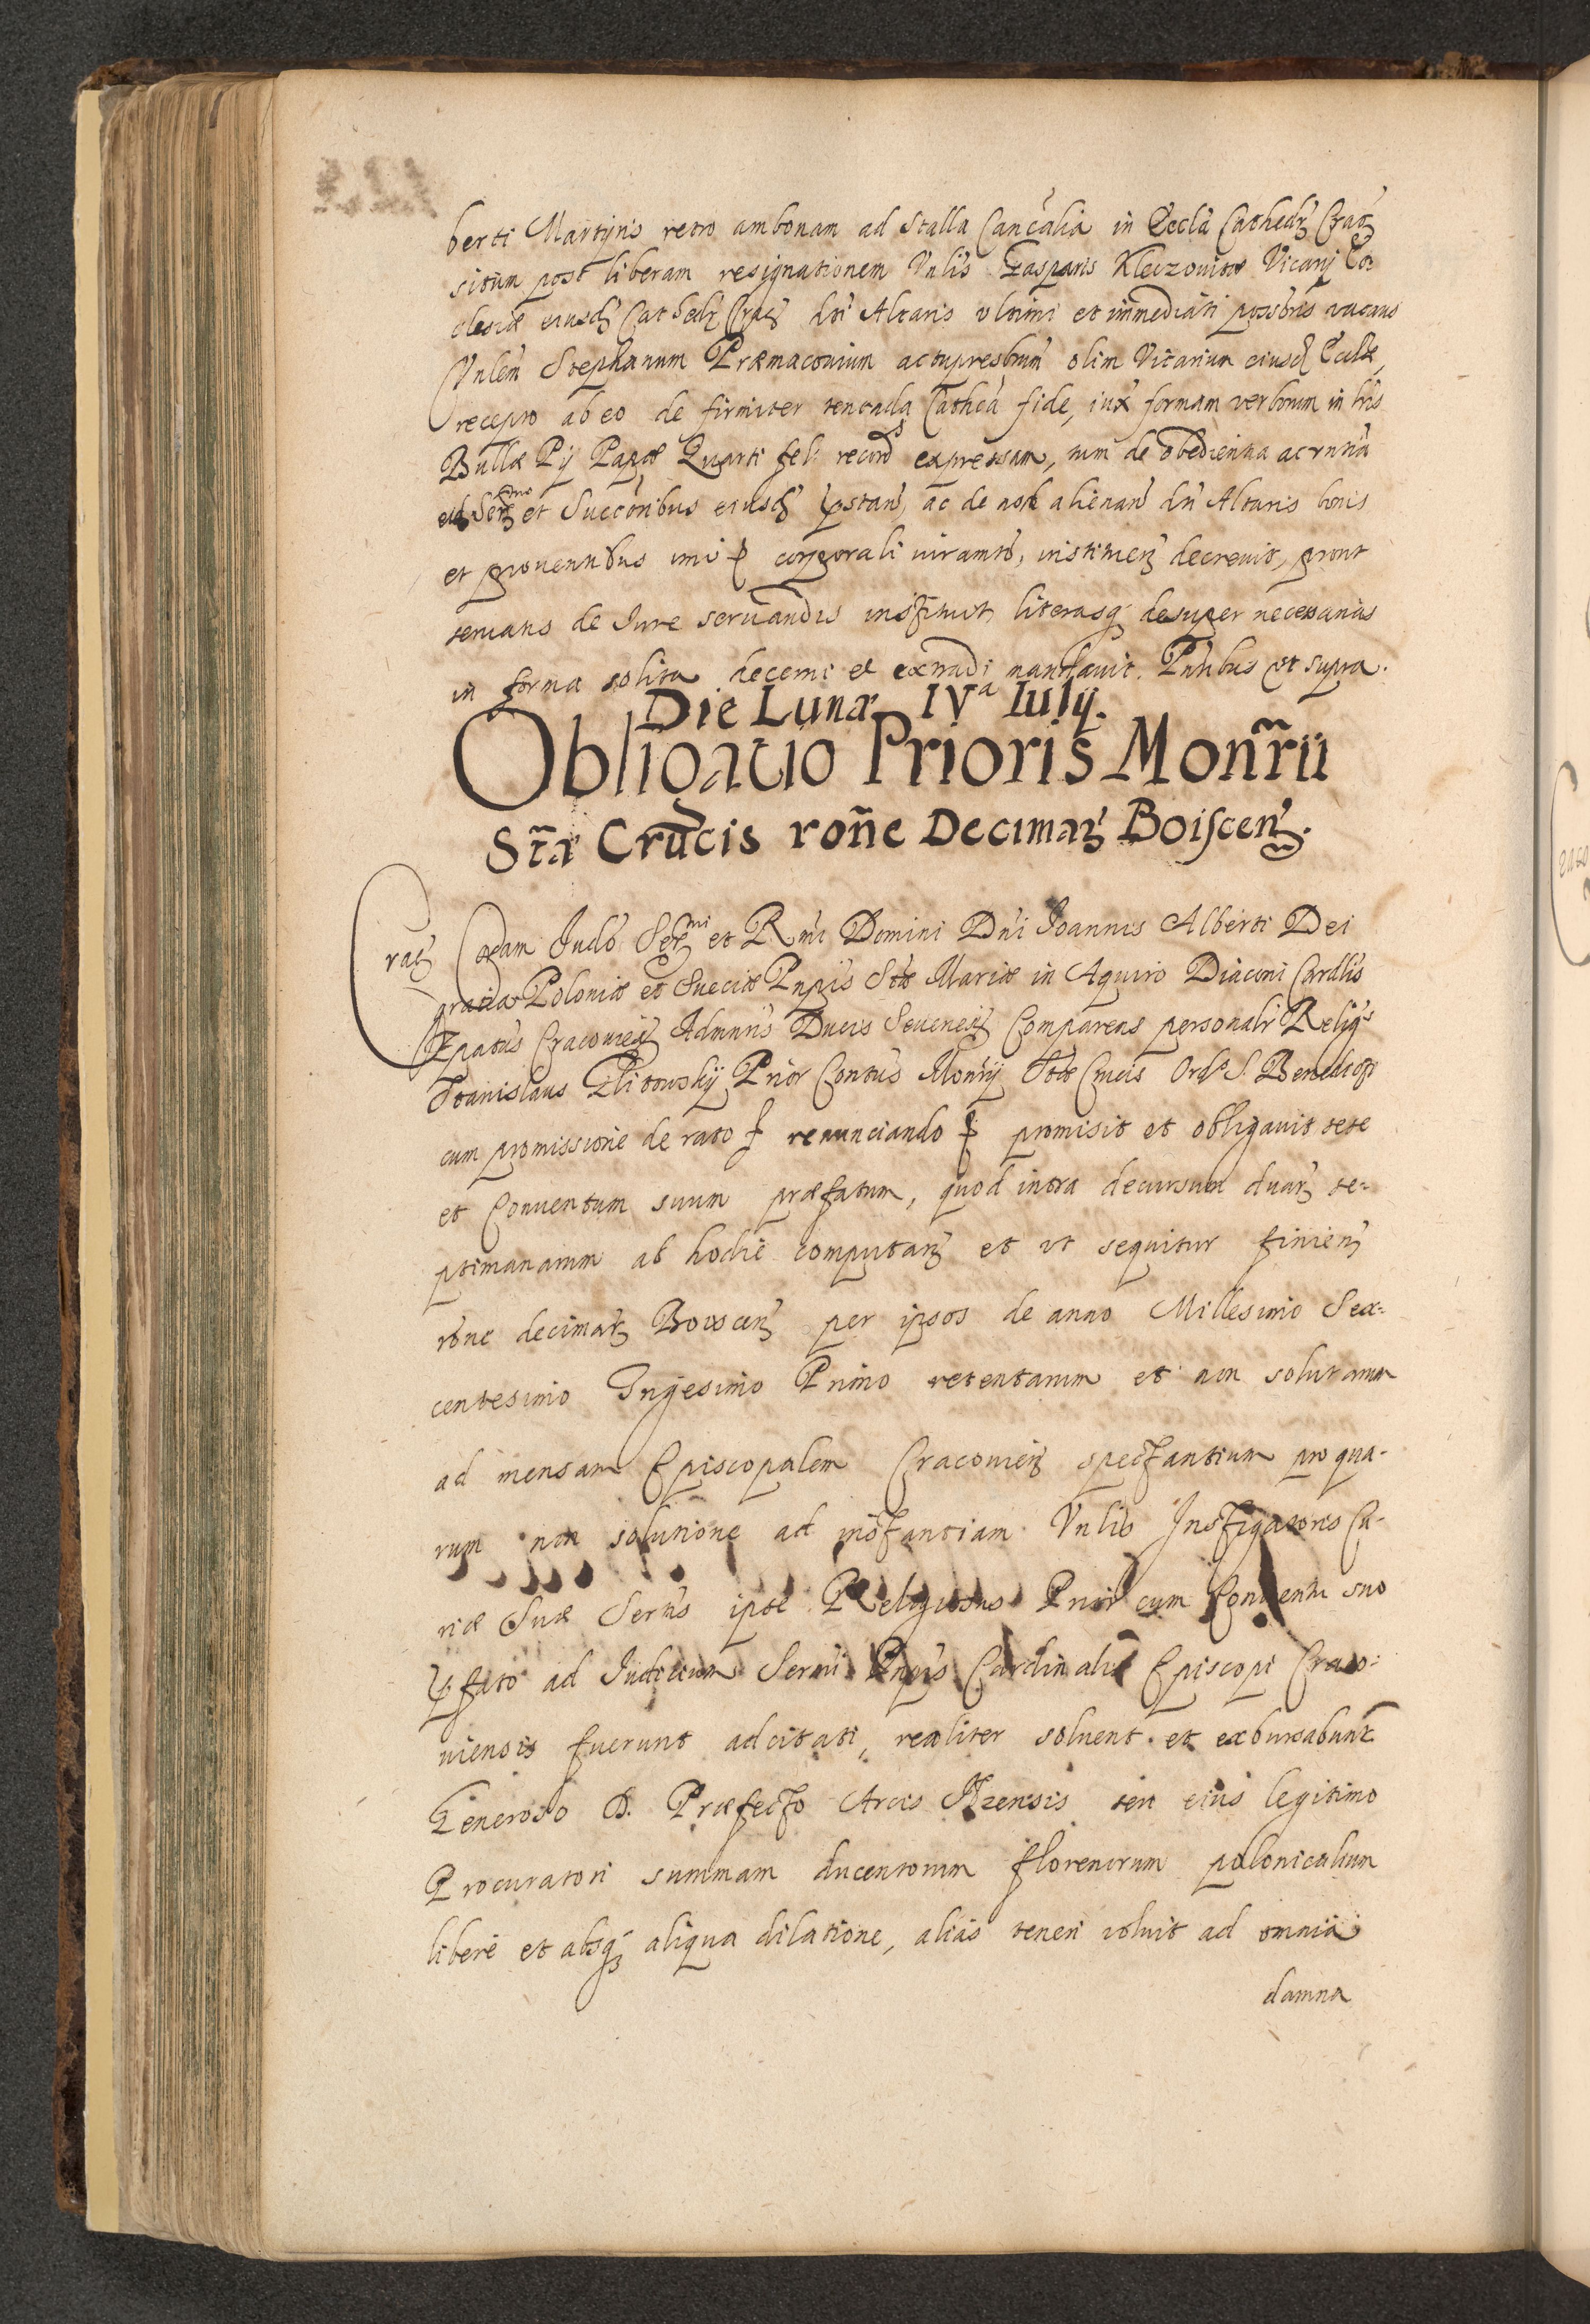 berti Martyris retro ambonam ad Stalla Cancalia in Eccla Cathedr Crac
situm post liberam resignationem Vnlis Gasparis Kleczouitis Vicarij Ec
clesiæ eiusd Cathedr Crac dni Altaris vltimi et immediati possoris vacans
Vnlem Stephanum Præmaconium actupresbrum olim Vicarium eiusd Ecclæ,
recepto ab eo de firmiter tenenda Cathca fide, iux formam verborum in lris
Bullæ Pij Papæ Quarti fel: record expressam, tum de obedientia ac rntia
eid Sermo et Succoribus eiusd pstan, ac de non alienan dni Altaris bonis
et prouentibus imi corporali iuramto, instituen decreuit, prout
seruatis de Iure seruandis instituit, literasq desuper necessarias
in forma solita decerni et extradi mandauit. Pntibus vt supra.
Die Lunæ IVa Iulij.
Obligatio Prioris Monrii
Stæ Crucis rone Decimar Boiscen.
Crac Coram Iudo Sermi et Rmi Domini Dni Ioannis Alberti Dei
gratia Poloniæ et Sueciæ Pnpis Stæ Mariæ in Aquiro Diaconi Cardlis
Epatus Cracouien Admnris Ducis Seuerien Comparens personalr Religs
Stanislaus Plitowskij Prior Contus Monrij Stæ Crucis Ords S. Benedicti
cum promissione de rato renunciando promisit et obligauit sese
et Conuentum suum præfatum, quod intra decursum duar se-
ptimanarum ab hodie computan et vt sequitur finien
rone decimar Boiscen per ipsos de anno Millesimo Sex-
centesimo Trigesimo Primo retentarum et non solutarum
ad mensam Episcopalem Cracouien spectantium pro qua-
rum non solutione ad instantiam Vnlis Instigatoris Cu-
riæ Suæ Sertis ipse Religiosus Prior cum Conuentu suo
pfato ad Iudicium Sermi Pnpis Cardinalis Episcopi Craco-
uiensis fuerunt adcitati, realiter soluent et exbursabunt
Generoso D. Præfecto Arcis Ilzensis seu eius legitimo
Procuratori summam ducentorum florenorum polonicalium
libere et absq aliqua dilatione, alias teneri voluit ad omnia
damna